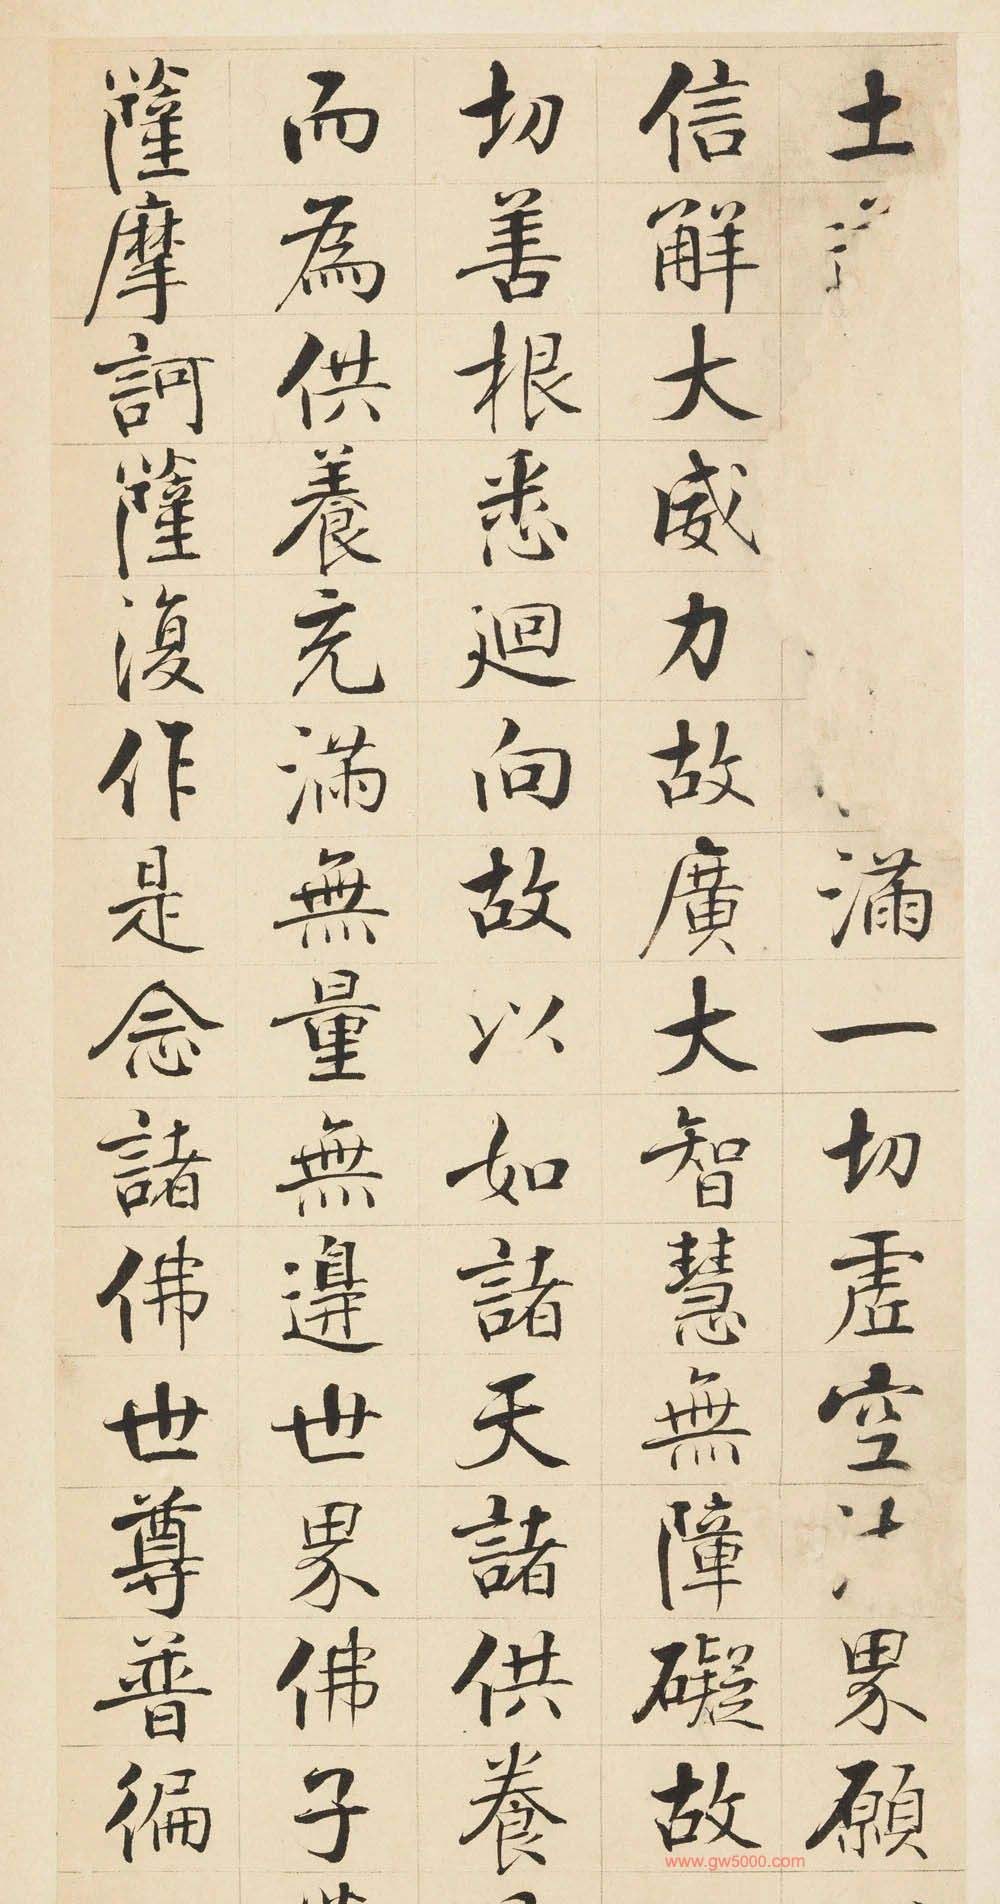 土滿一切虛空界願
信解大威力故廣大智慧無障礙故
切善根悉迴向故以如諸天諸供養
而為供養充滿無量無邊世界佛子
薩摩訶薩復作是念諸佛世尊普徧
www.gw5000.com